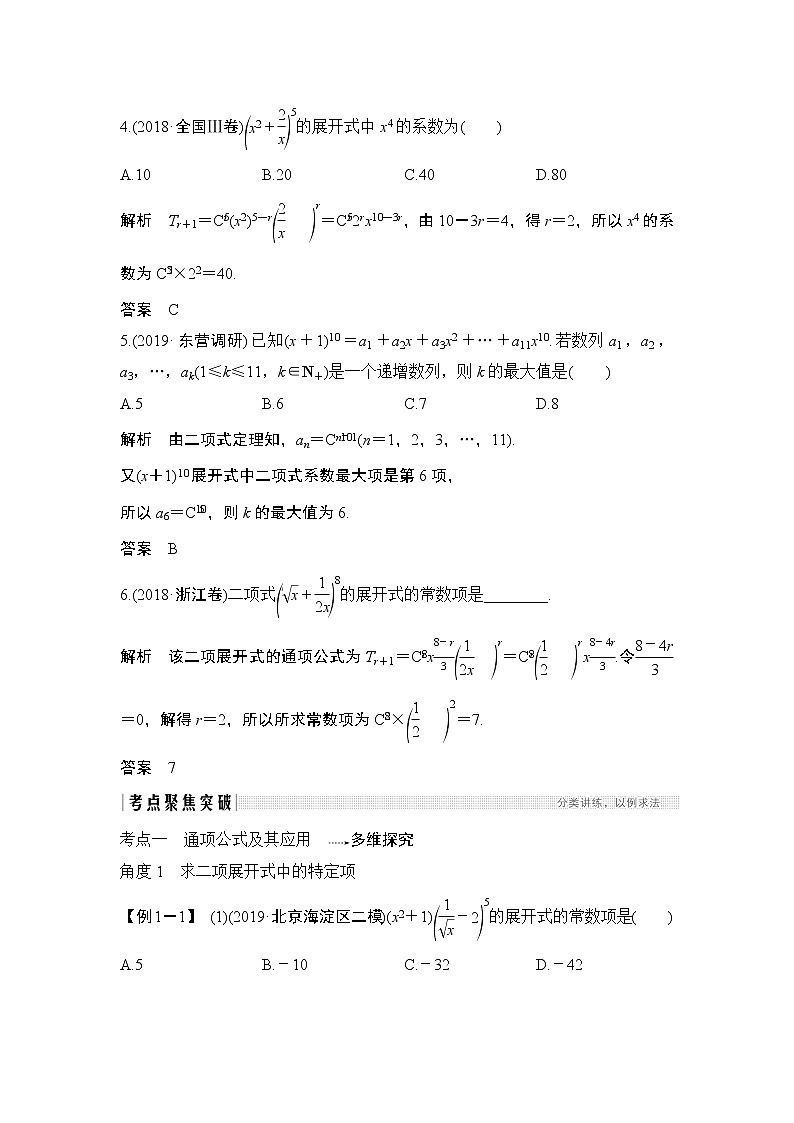 4.(2018·全国Ⅲ卷)(x²+2/x)⁵的展开式中 x⁴的系数为(  )
A.10 B.20 C.40 D.80
解析 Tᵣ₊₁=C₅ʳ(x²)⁵⁻ʳ(2/x)ʳ=C₅ʳ2ʳx¹⁰⁻³ʳ,由 10-3r=4,得 r=2,所以 x⁴的系
数为 C₅²×2²=40.
答案 C
5.(2019·东营调研)已知(x+1)¹⁰=a₁+a₂x+a₃x²+…+a₁₁x¹⁰.若数列 a₁,a₂,
a₃,…,aₖ(1≤k≤11,k∈N₊)是一个递增数列,则 k 的最大值是(  )
A.5 B.6 C.7 D.8
解析 由二项式定理知,aₙ=C₁₀ⁿ⁻¹(n=1,2,3,…,11).
又(x+1)¹⁰展开式中二项式系数最大项是第 6 项,
所以 a₆=C₁₀⁵,则 k 的最大值为 6.
答案 B
6.(2018·浙江卷)二项式(∛x+1/2x)⁸的展开式的常数项是________.
解析 该二项展开式的通项公式为 Tᵣ₊₁=C₈ʳx^((8-r)/3)(1/2x)ʳ=C₈ʳ(1/2)ʳx^((8-4r)/3).令(8-4r)/3
=0,解得 r=2,所以所求常数项为 C₈²×(1/2)²=7.
答案 7
考点聚焦突破 分类讲练,以例求法
考点一 通项公式及其应用 多维探究
角度 1 求二项展开式中的特定项
【例 1-1】 (1)(2019·北京海淀区二模)(x²+1)(1/√x-2)⁵的展开式的常数项是(  )
A.5 B.-10 C.-32 D.-42